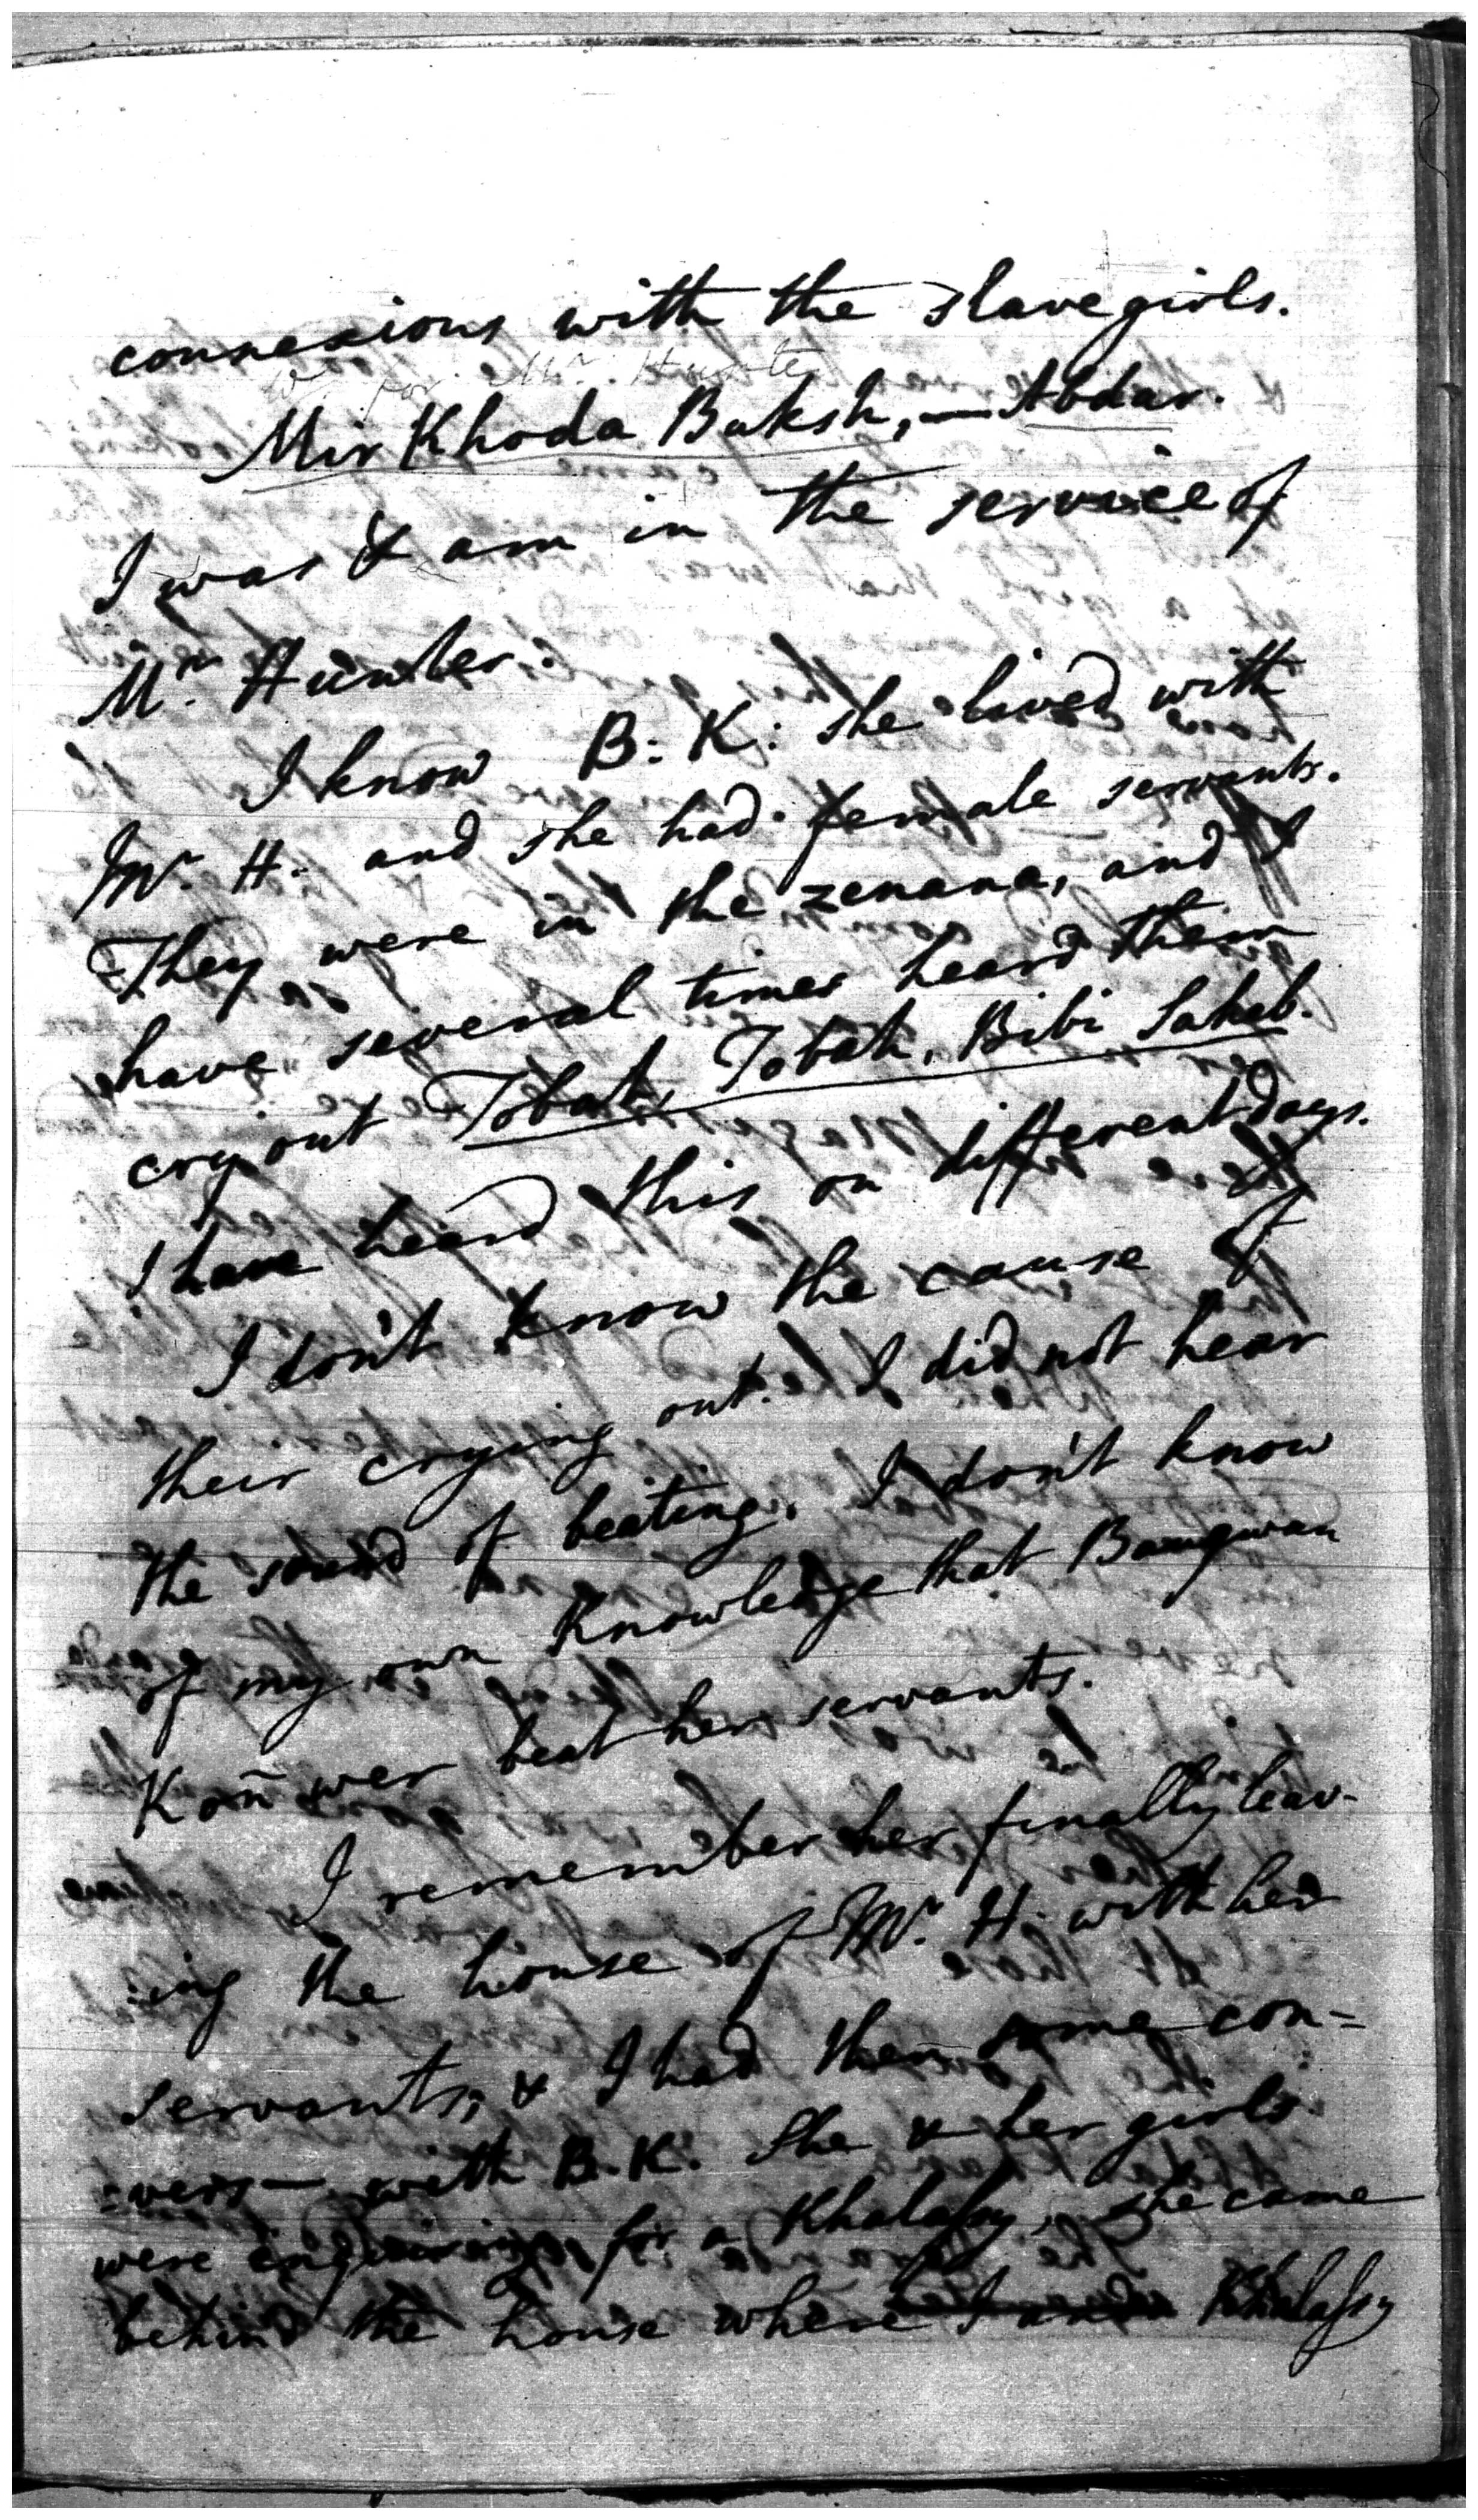 connexions with the slave girls.
Mr. Hunter
Mir Khoda Buksh,—Abdar.
I was & am in the service of
Mr. Hunter.
I know B: K: she lived with
Mr. H. and she had female servants.
They were in the zenana, and I
have several times heard them
cry out Tobah, Tobah, Bibi Saheb.
I have heard this on different days.
I don't know the cause of
their crying out. I did not hear
the sound of beating. I don't know
of my own knowledge that Baugwan
Konwer beat her servants.
I remember her finally leav-
:ing the house of Mr. H. with her
servants; & I had then some con-
:vers— with B.K. She & her girls
were enquiring for a Khalasy, she came
behind the house where Khalasy